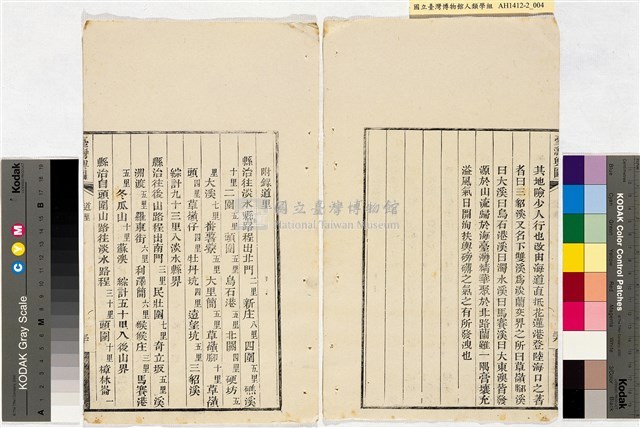 國立臺灣博物館人類學組 AH1412-2_004
其地險少人行也改由海道直抵花蓮港登陸海口之著
者曰三貂溪又名下雙溪爲淡蘭交界之所曰草嶺腳溪
曰大溪曰烏石港溪曰濁水溪曰馬賽溪曰大東澳皆發
源於山流歸於海臺灣精華聚於北路蘭雖一隅膏壤充
溢風氣日開
之氣之有所發洩也
附錄道里
縣治往淡水縣路程出北門 二里 新庄 八里 四圍 五里 礁溪
十里 二圍 五里 頭圍 五里 烏石港 五里 北關 四里 硬坊 五里
大溪 七里 番薯寮 五里 大里簡 五里 草嶺腳 十里 草嶺
頭 四里 草嶺仔 四里 牡丹坑 四里 遠望坑 三里 三貂溪
綜計九十三里入淡水縣界
縣治往後山路程出南門 三里 民壯圍 七里 奇立坂 五里 溪
洲渡 五里 羅東街 六里 利澤簡 六里 猴猴庄 三里 馬賽港
五里 冬瓜山 十里 蘇澳 綜計五十里入後山界
縣治自頭圍山路往淡水路程 三十里 頭圍 十里 樟林崙 一
道里
國立臺灣博物館
National Taiwan Museum
KODAK Color Control Patches
KODAK Gray Scale
Kodak
C
Y
M